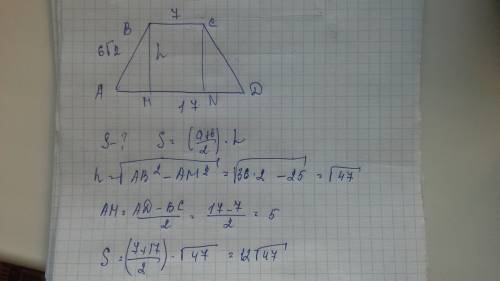 7
B C
6√2 h
A M 17 N D
S-? S = (a+b/2) · h
h = √AB² - AM² = √36·2 - 25 = √47
AM = AD - BC/2 = 17-7/2 = 5
S = (7+17/2) · √47 = 12√47